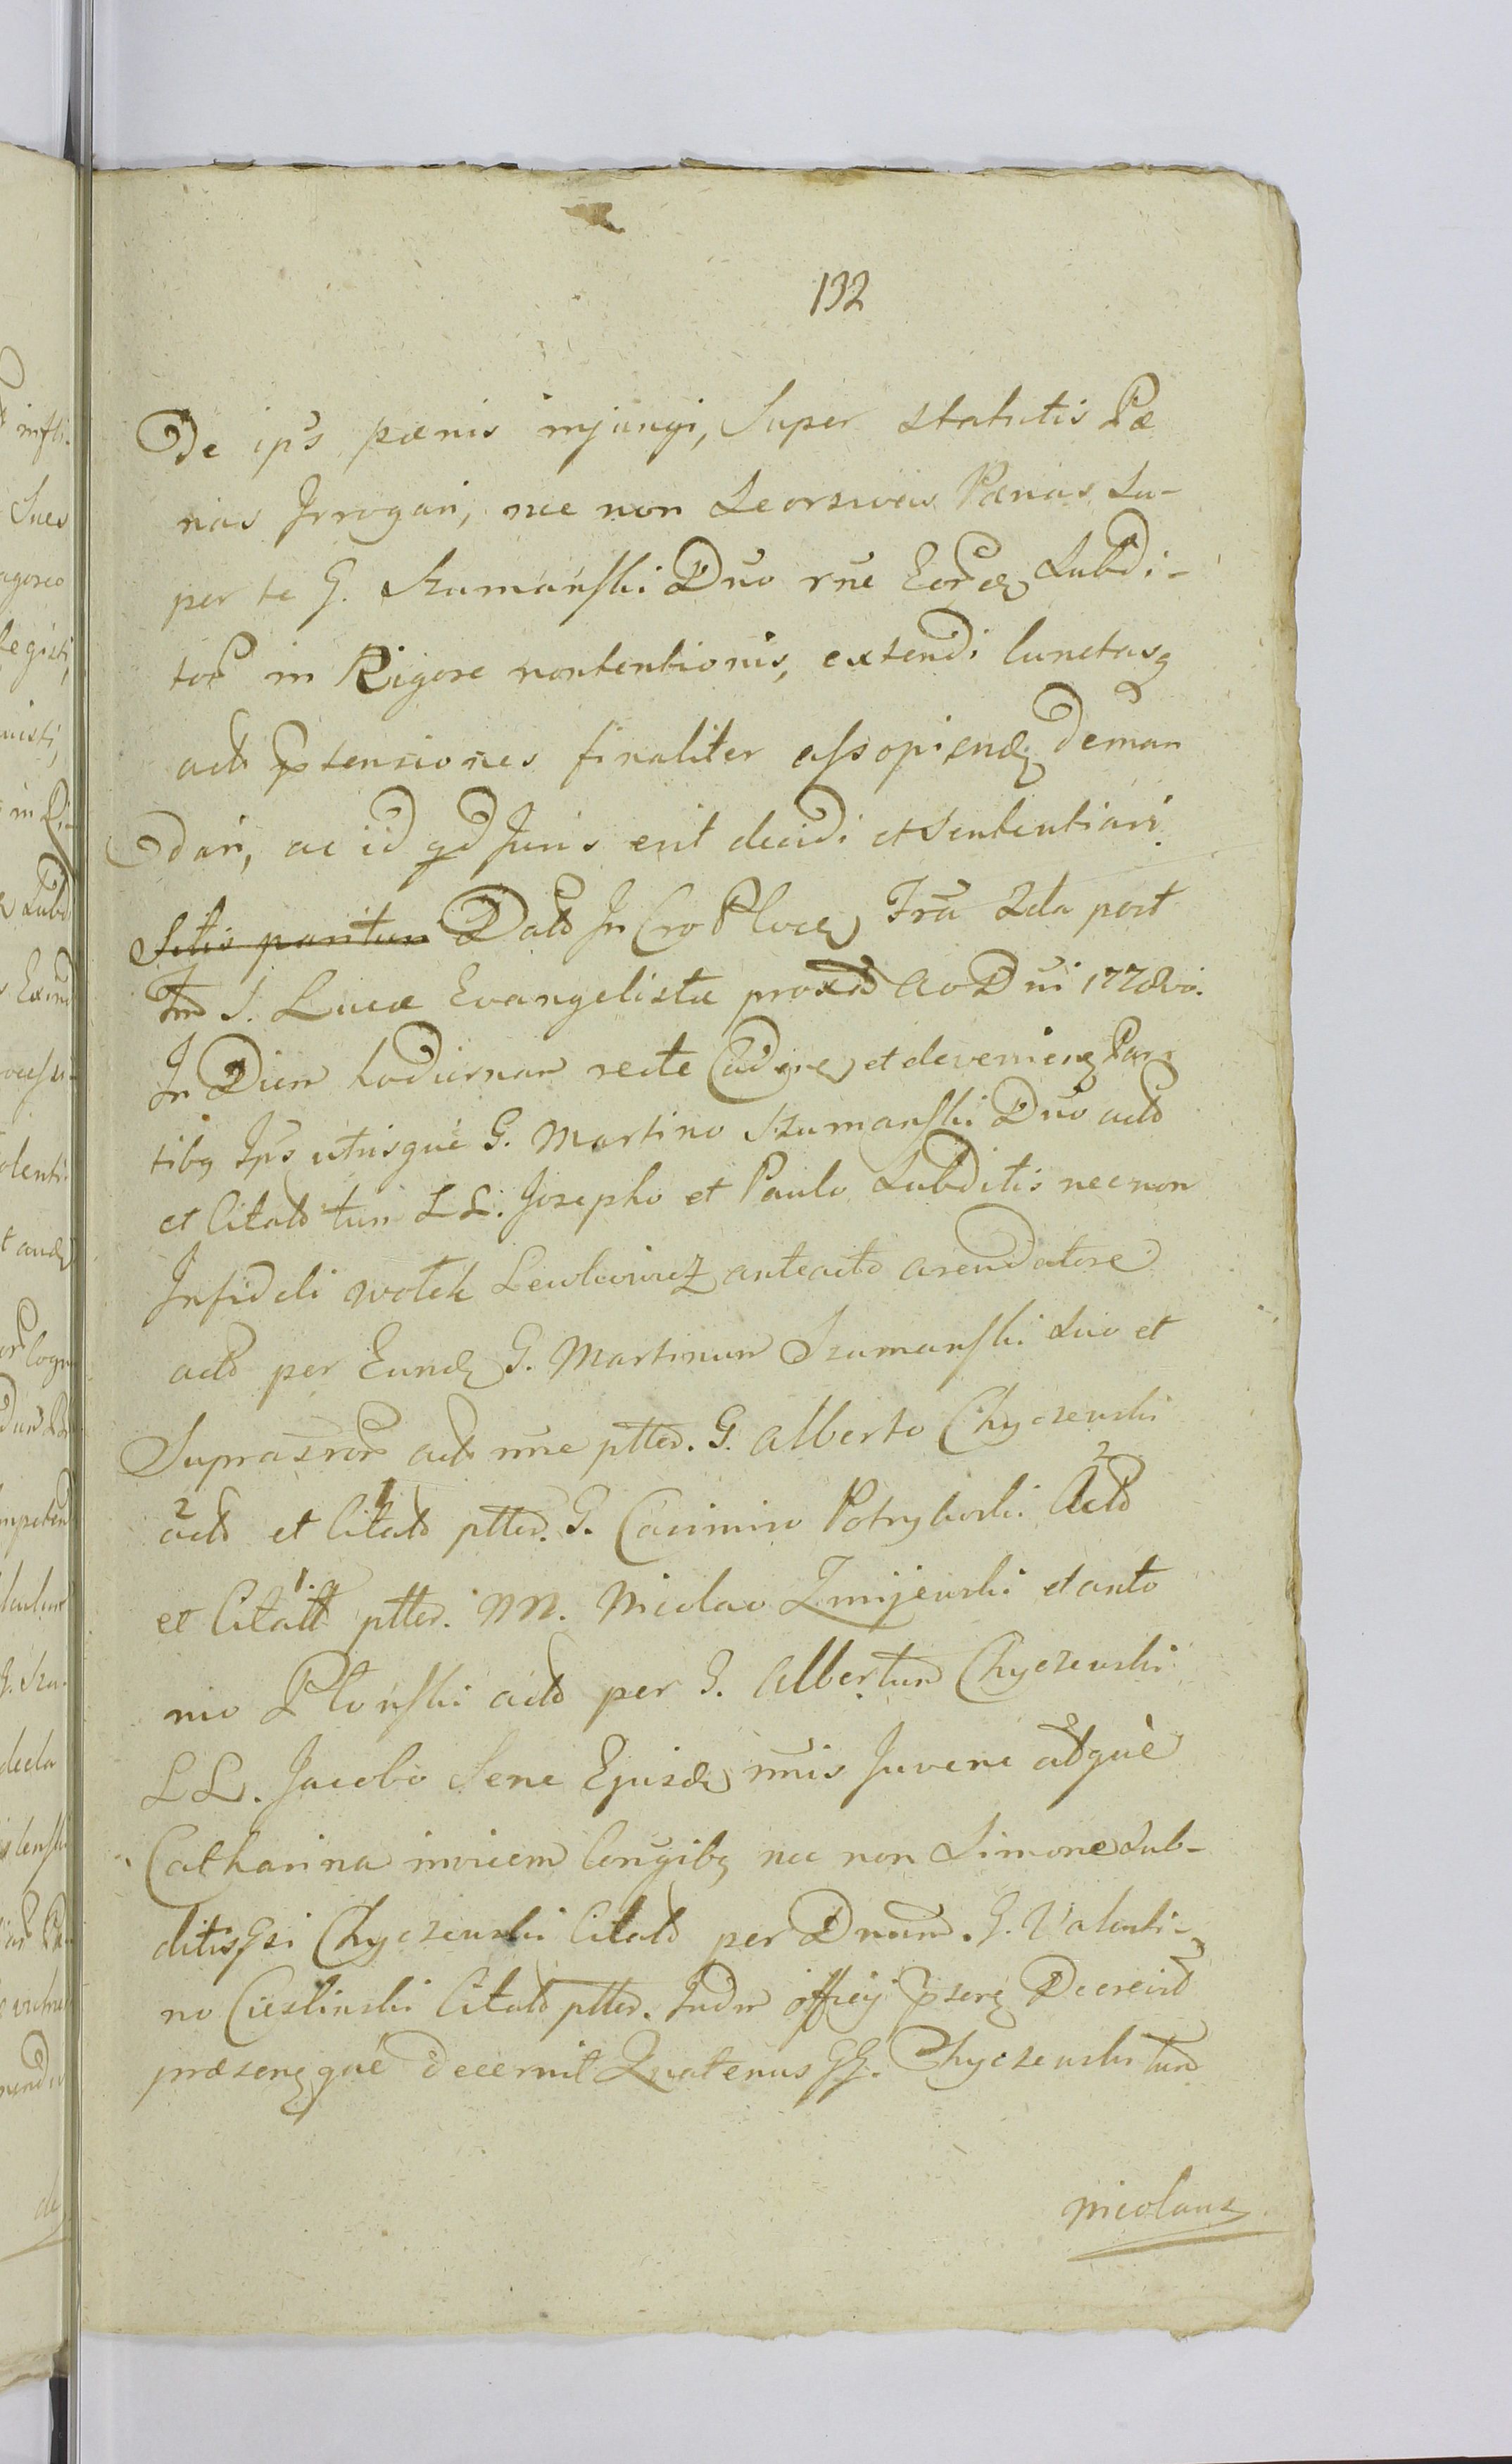 132
De ips pænis injungi, Super statutis Pæ
nas Irrogari, nec non Seorsivas Pænas Su-
per te G. Szumański Dno rne Eordz Subdi-
tor in Rigore nontentionis, extendi Cunctasq
actò prtensiones finaliter assopiendz deman
dari, ac id qd Juris erit decidi et Sententiari.
Sitis paritur Datò In Cro Plocz Fria 2da post
Ftm S. Lucæ Evangelistæ proxò Ao Dni 1778vo.
In Diem hodiernam recte Cadenz et devenienz Par
tibq Ips utrisque G. Martino Szumański Dno actò
et Citatò tum LL. Josepho et Paulo Subditis nec non
Infideli Wołek Lewkowicz anteacto arendatore
actò per Eundz G. Martinum Szumański Suo et
Suprasror actò nne ptter. G. Alberto Chyczewski
2 actò et 1 Citatò ptter. G. Casimiro Potrykoski 2 Actò
et 1. Citatt ptter. MM. Nicolao Zmijewski et Anto
nio Płoński actò per G. Albertum Chyczewski
LL. Jacobo Sene Ejusdz nnis Juvene adquè
Catharina invicem Congibq nec non Simone Sub-
ditis Gsi Chyczewski Citatò per Dnum. G. Valenti-
no Cieslinski Citatò ptter. Judm officij prsens Decrevit
præsenzquè decernit Quatenus GG. Chyczewski tum
Nicolaus